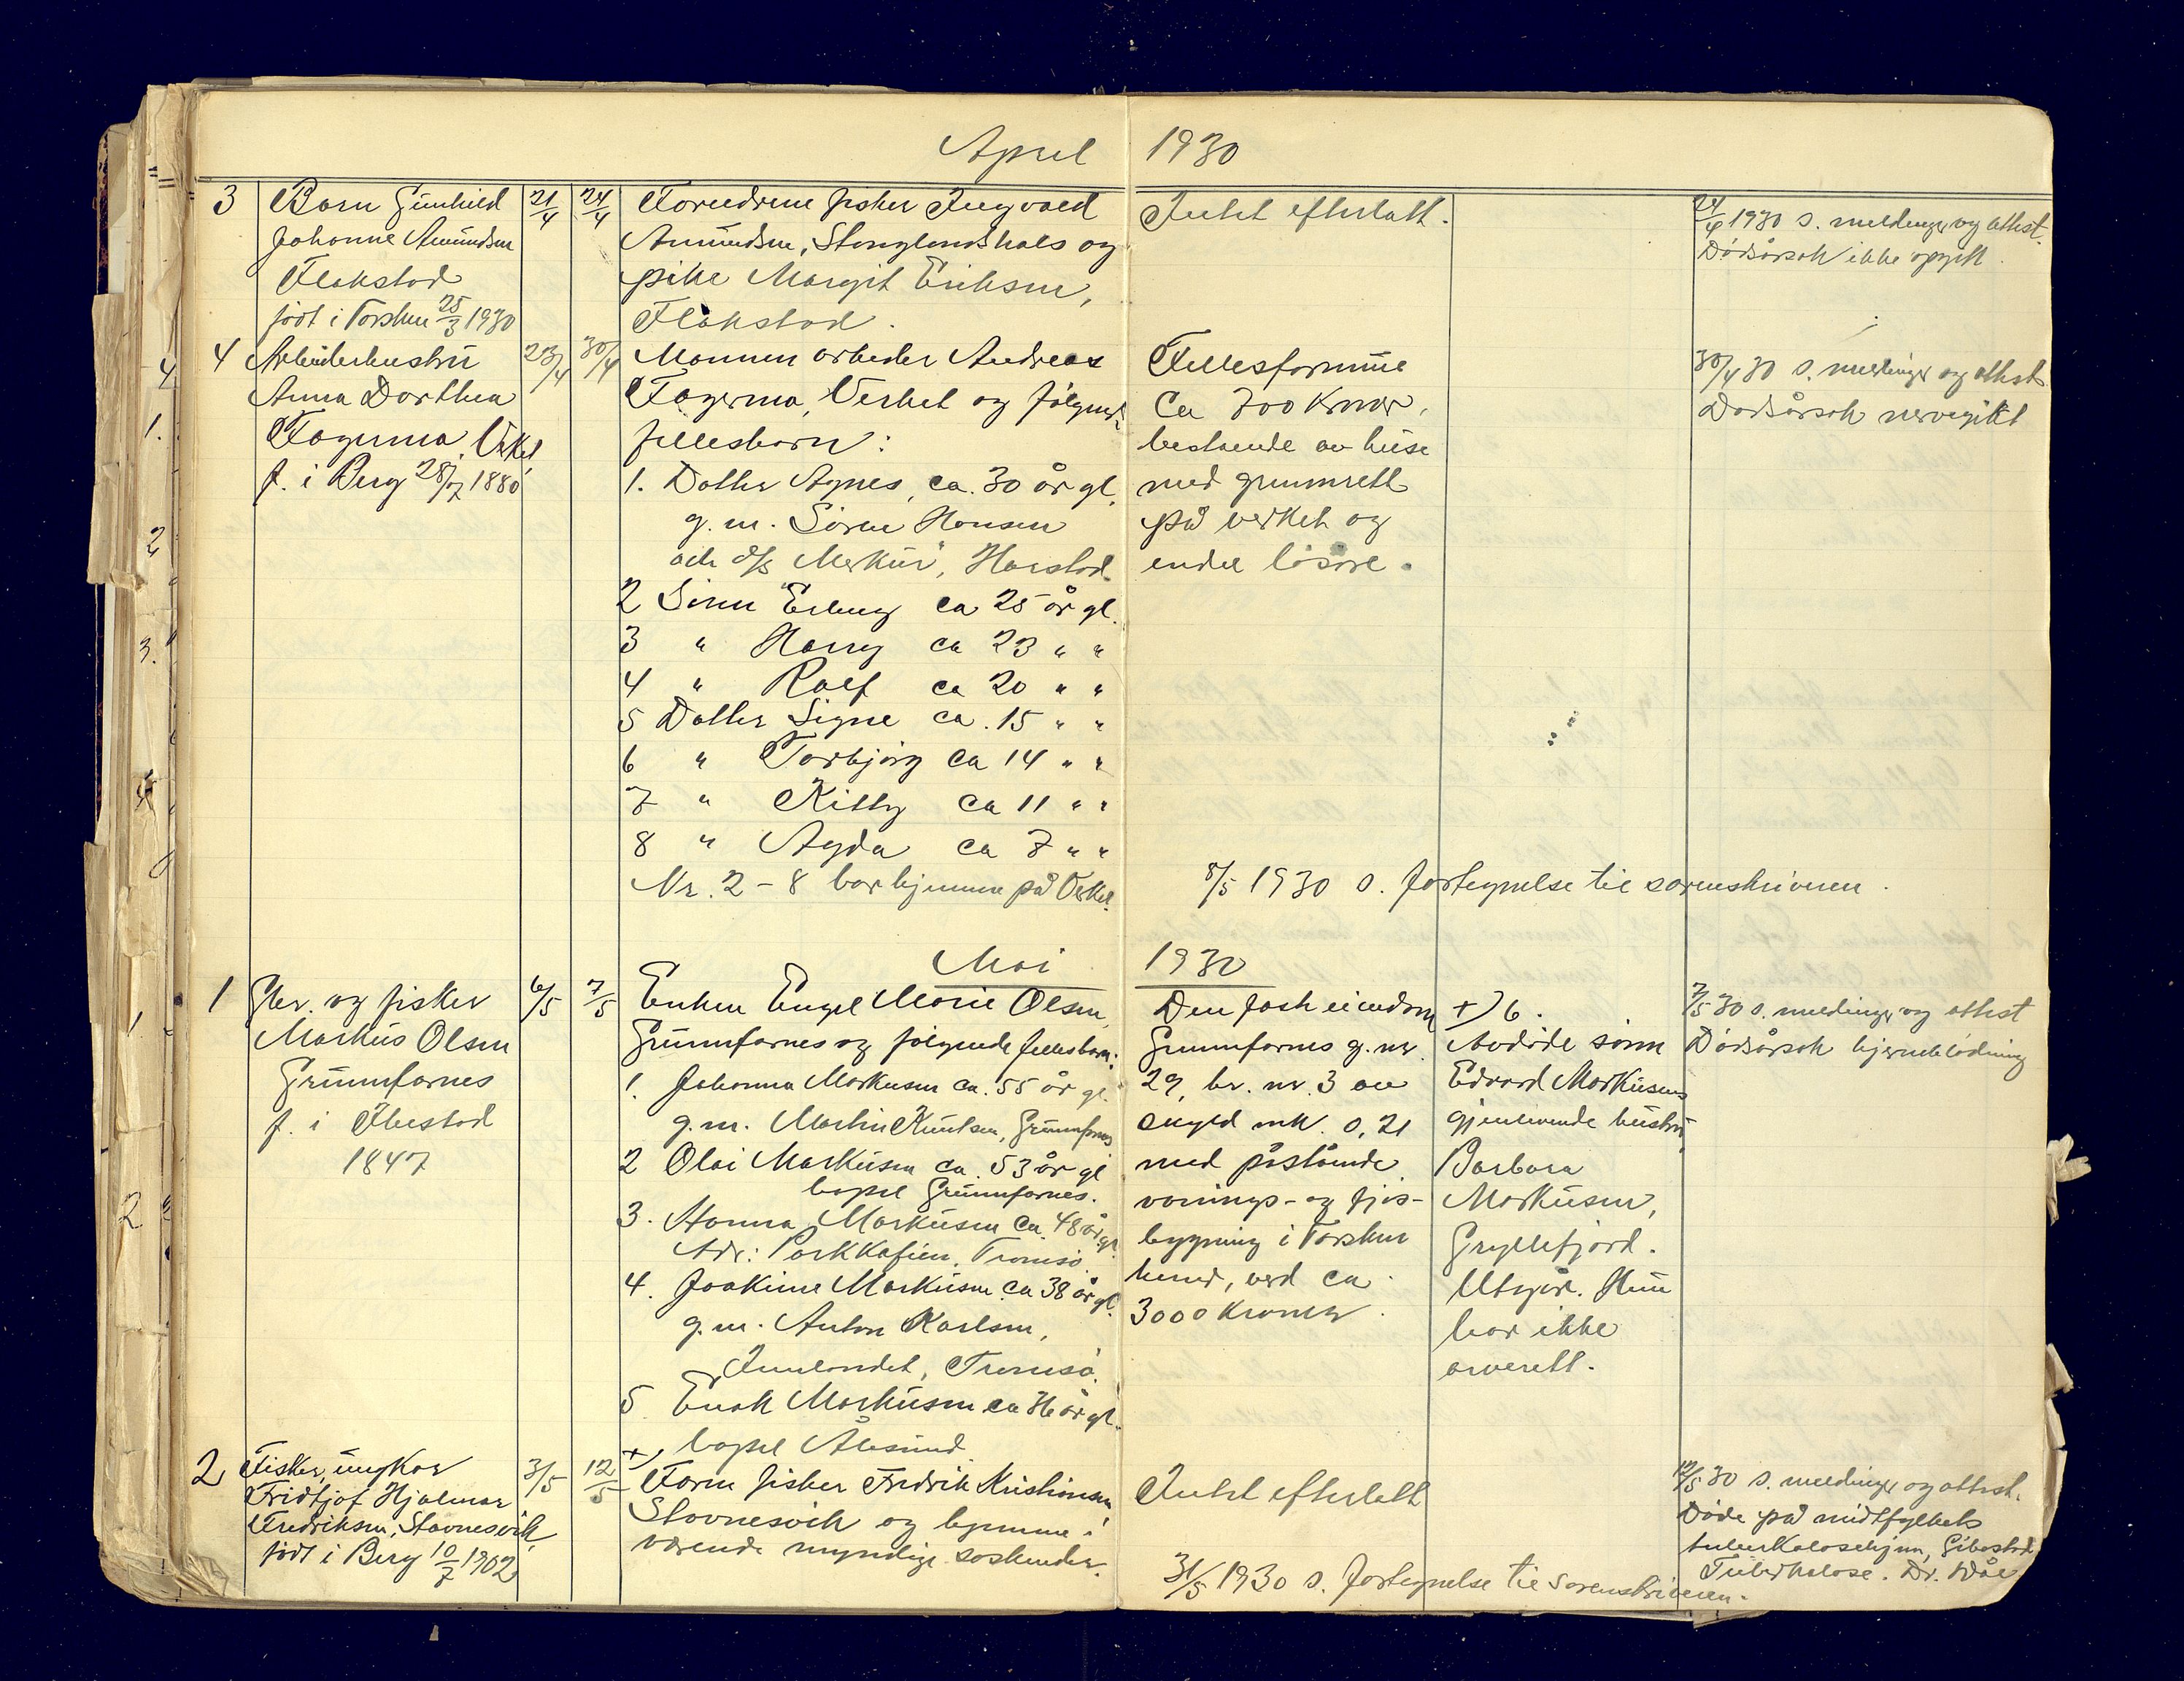 April 1930
3 Barn Gunhild
Johanne Amundsen
Flakstad
født i Torsken 25/3 1930
21/4
24/4
Foreldrene fisker Ingvald
Amundsen, Stonglandshals og
pike Margit Eriksen,
Flakstad.
Intet efterlatt.
24/4 1930 s. melding og attest.
Dødsårsak ikke opgitt.
4 Arbeiderhustru
Anna Dorthea
Fagermo, Verket
f. i Berg 28/7 1880
23/4
30/4
Mannen arbeider Andreas
Fagermo, Verket og følgende
fellesbarn:
1. Datter Agnes, ca. 30 år gl.
g. m. Søren Hansen
adr. d/s "Merkur", Harstad.
2 Sønn Erling ca 25 år gl.
3 " Harry ca 23 " "
4 " Ralf ca 20 " "
5 Datter Signe ca. 15 " "
6 " Torbjørg ca 14 " "
7 " Kitty ca 11 " "
8 " Agda ca 7 " "
Nr. 2 - 8 bor hjemme på Verket.
Fellesformue
Ca 700 kroner,
bestående av huse
med grunnrett
på verket og
endel løsøre.
30/4 30 s. melding og attest.
Dødsårsak nervegikt
8/5 1930 s. fortegnelse til sorenskriveren.
Mai 1930
1 Gbr. og fisker
Markus Olsen
Grunnfarnes
f. i Ibestad
1847
6/5
7/5
Enken Engel Marie Olsen,
Grunnfarnes og følgende fellesbarn:
1. Johanna Markusen ca. 55 år gl.
g. m. Martin Knutsen, Grunnfarnes
2 Olai Markusen ca. 53 år gl
bopel Grunnfarnes.
3. Hanna Markusen ca. 48 år gl.
Adr: Parkkafeen, Tromsø.
4. Joakime Markusen ca 38 år gl.
g. m. Anton Karlsen,
Innlandet, Tromsø.
5 Enok Markusen ca 36 år gl.
+) bopel Ålesund
Den faste eiendom
Grunnfarnes g. nr.
29, br. nr. 3 av
skyld mk. 0,21
med påstående
vånings- og fjøs-
bygning i Torsken
herred, verd ca
3000 kroner.
+) 6.
Avdøde sønn
Edvard Markusens
gjenlevende hustru
Barbara
Markusen,
Gryllefjord.
Utgår. Hun
har ikke
arverett.
7/5 30 s. melding og attest
Dødsårsak hjerneblødning
2 Fisker, ungkar
Fridtjof Hjalmar
Fredriksen, Stavnesvik,
født i Berg 10/7 1902
3/5
12/5
Faren fisker Fredrik Kristiansen
Stavnesvik og hjemme-
værende myndige søskender.
Intet efterlatt
12/5 30 s. melding og attest.
Døde på midtfylkets
tuberkulosehjem, Gibostad
Tuberkulose. Dr.
31/5 1930 s. fortegnelse til sorenskriveren.